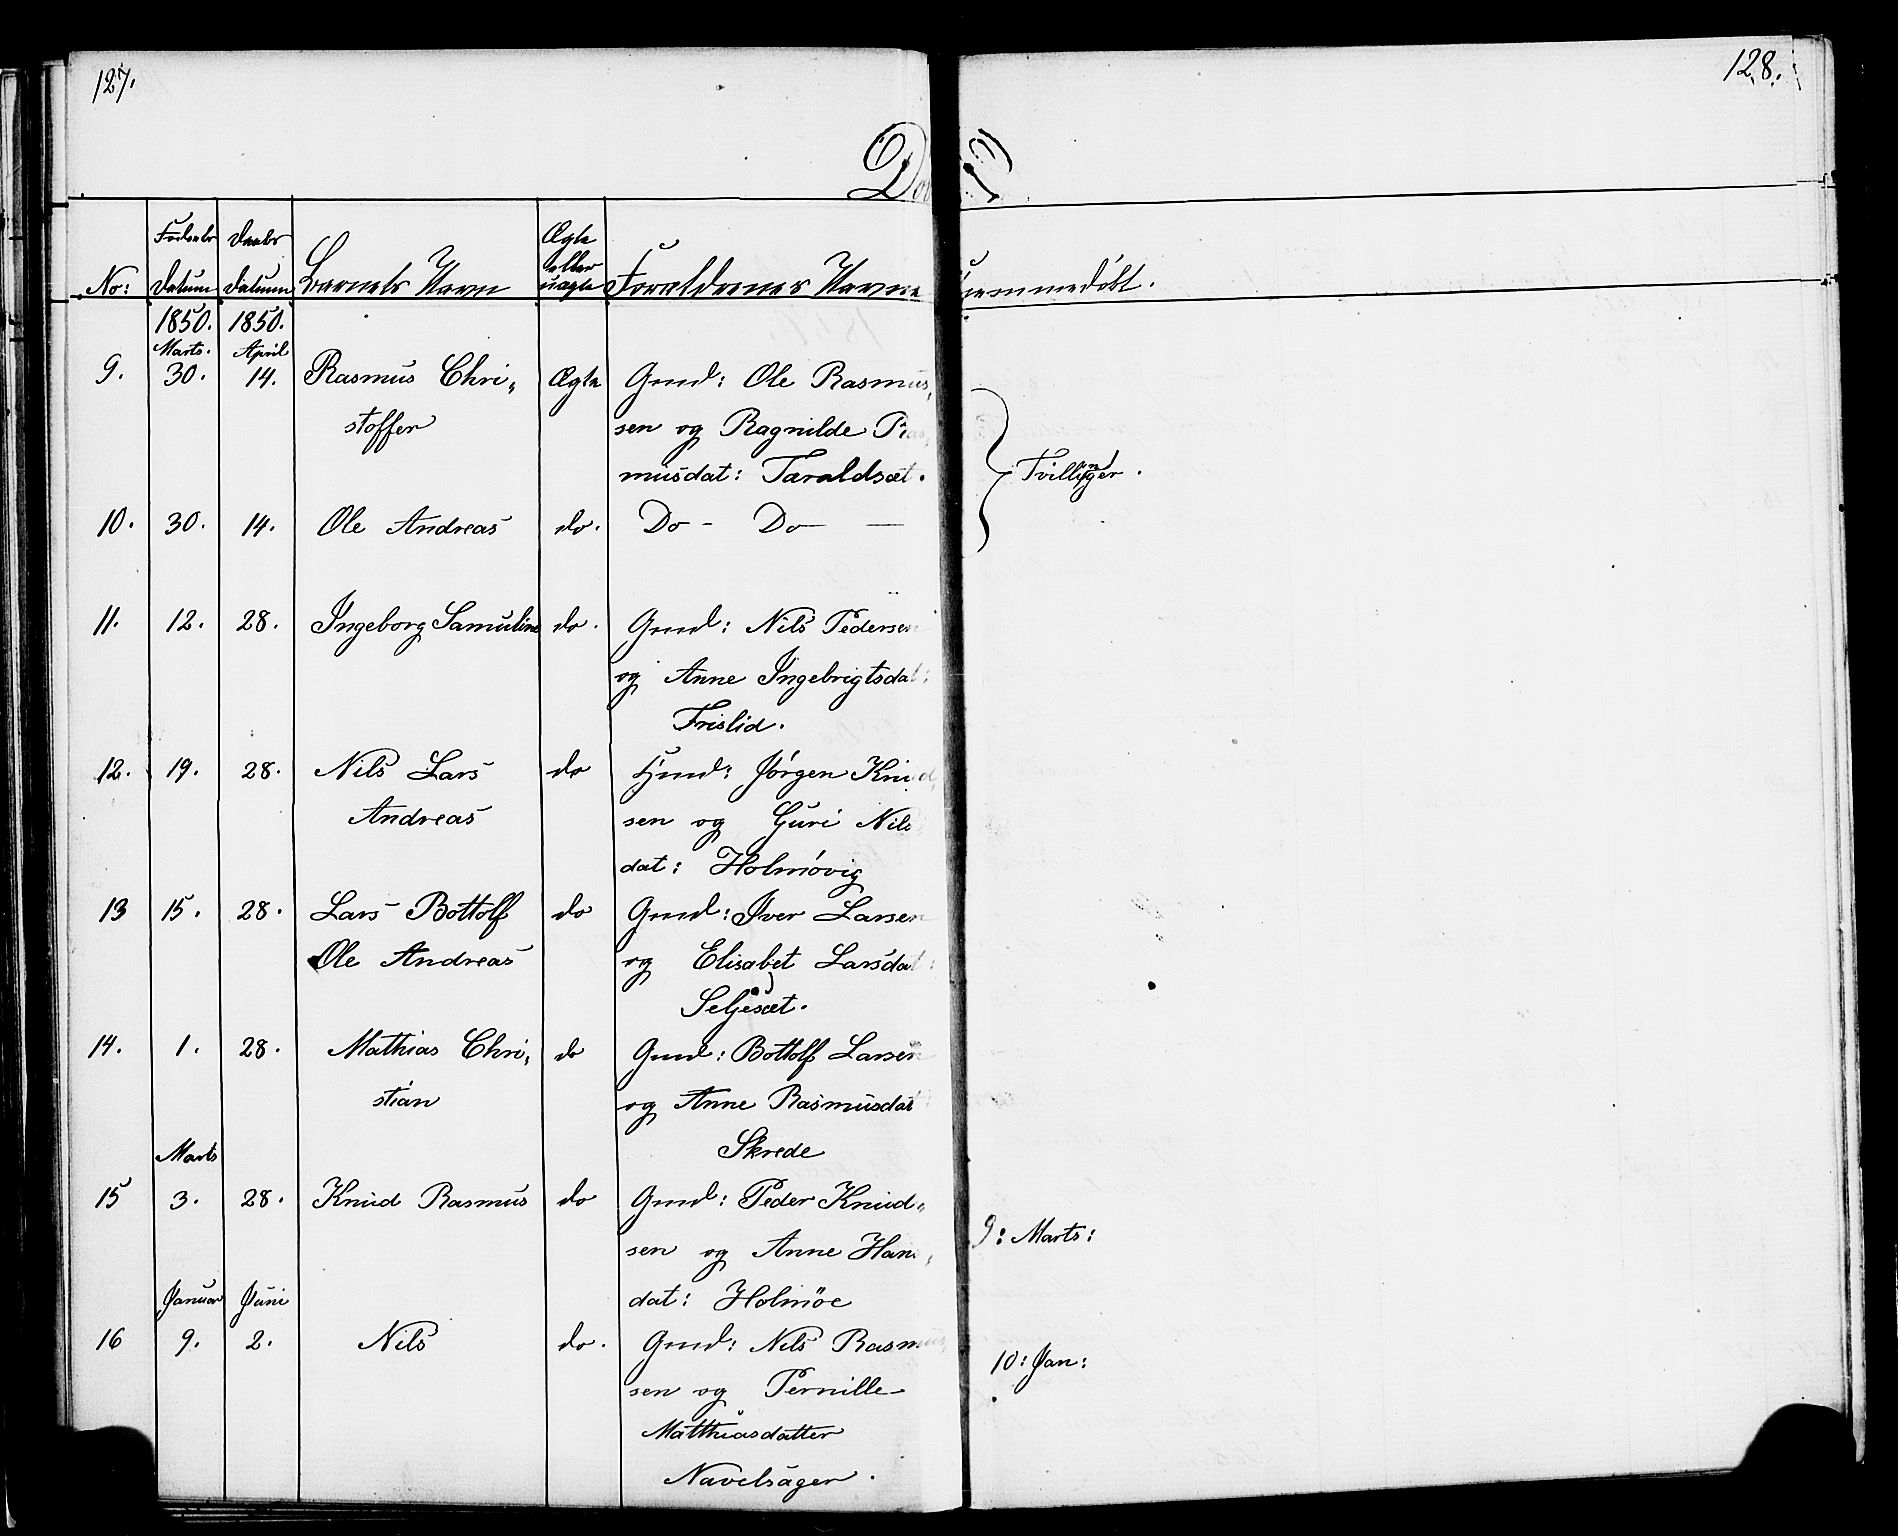 127.
128.
No: Fødsels Datum Daabs Datum Barnets Navn Ægte eller uægte Forældrenes Navne
Hjemmedøbt.
1850. 1850.
Marts. April
9. 30. 14. Rasmus Chri„ Ægte Gmd: Ole Rasmus„
stoffer sen og Ragnilde Ras„
musdat: Taraldsæt.
Tvillinger.
10. 30. 14. Ole Andreas do. Do – Do —
11. 12. 28. Ingeborg Samuline do. Gmd: Nils Pedersen
og Anne Ingebrigtsdat:
Frislid.
12. 19. 28. Nils Lars do Hmd: Jørgen Knud„
Andreas sen og Guri Nils
dat: Holmøvig
13 15. 28. Lars Bottolf do Gmd: Iver Larsen
Ole Andreas og Elisabet Larsdat:
Seljesæt.
14. 1. 28. Mathias Chri„ do Gmd: Bottolf Larsen
stian og Anne Rasmusdat
Marts Skrede
15 3. 28. Knud Rasmus do Gmd: Peder Knud„
9: Marts:
sen og Anne Hans„
Januar Juni dat: Holmöe
16 9. 2. Nils do. Gmd: Nils Rasmus„
10: Jan:
sen og Pernille
Matthiasdatter
Navelsager.